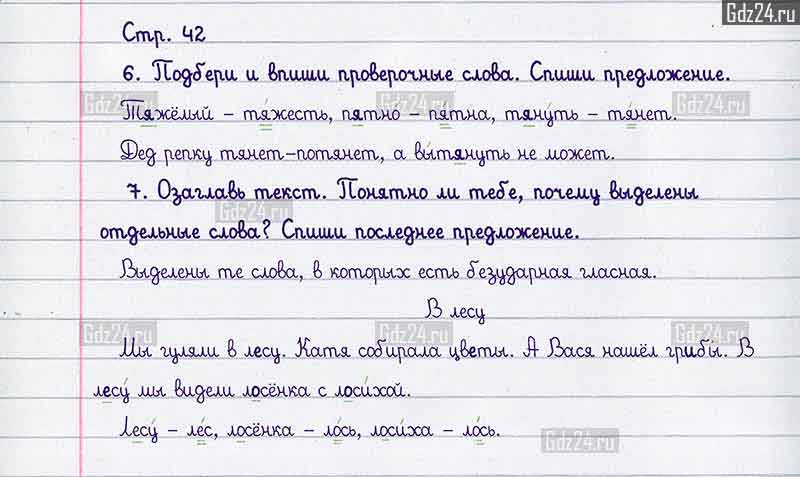 Gdz24.ru
Стр. 42
6. Подбери и впиши проверочные слова. Спиши предложение.
Gdz24.ru Gdz24.ru Gdz24.ru
Тяжёлый – тя́жесть, пятно – пя́тна, тяну́ть – тя́нет.
Дед репку тянет-потянет, а вы́тянуть не может.
7. Озаглавь текст. Понятно ли тебе, почему выделены
Gdz24.ru
отдельные слова? Спиши последнее предложение.
Выделены те слова, в которых есть безударная гласная.
В лесу
Gdz24.ru Gdz24.ru Gdz24.ru
Мы гуляли в лесу. Катя собирала цветы. А Вася нашёл грибы́. В
лесу́ мы видели лосёнка с лоси́хой.
Лесу́ – ле́с, лосёнка – ло́сь, лоси́ха – ло́сь.
Gdz24.ru